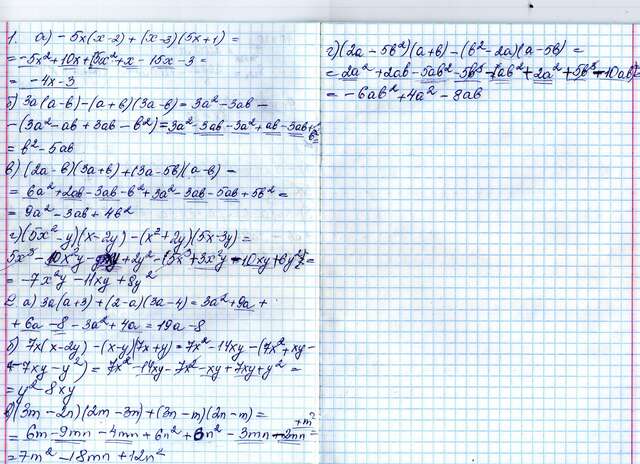 1. а) -5x(x-2)+(x-3)(5x+1)=
=-5x²+10x+5x²+x-15x-3=
=-4x-3
б) 3a(a-b)-(a+b)(3a-b)=3a²-3ab-
-(3a²-ab+3ab-b²)=3a²-3ab-3a²+ab-3ab+b²=
=b²-5ab
в) (2a-b)(3a+b)+(3a-5b)(a-b)=
=6a²+2ab-3ab-b²+3a²-3ab-5ab+5b²=
=9a²-3ab+4b²
г) (5x²-y)(x-2y)-(x²+2y)(5x-3y)=
5x³-10x²y-xy+2y²-5x³+3x²y-10xy+6y²=
=-7x²y-11xy+8y²
2. а) 3a(a+3)+(2-a)(3a-4)=3a²+9a+
+6a-8-3a²+4a=19a-8
б) 7x(x-2y)-(x-y)(7x+y)=7x²-14xy-(7x²+xy-
-7xy-y²)=7x²-14xy-7x²-xy+7xy+y²=
=y²-8xy
в) (3m-2n)(2m-3n)+(3n-m)(2n-m)=
=6m-9mn-4mn+6n²+6n²-3mn-2mn+m²=
=7m²-18mn+12n²
г) (2a-5b²)(a+b)-(b²-2a)(a-5b)=
=2a²+2ab-5ab²-5b³-ab²+2a²+5b³-10ab=
=-6ab²+4a²-8ab